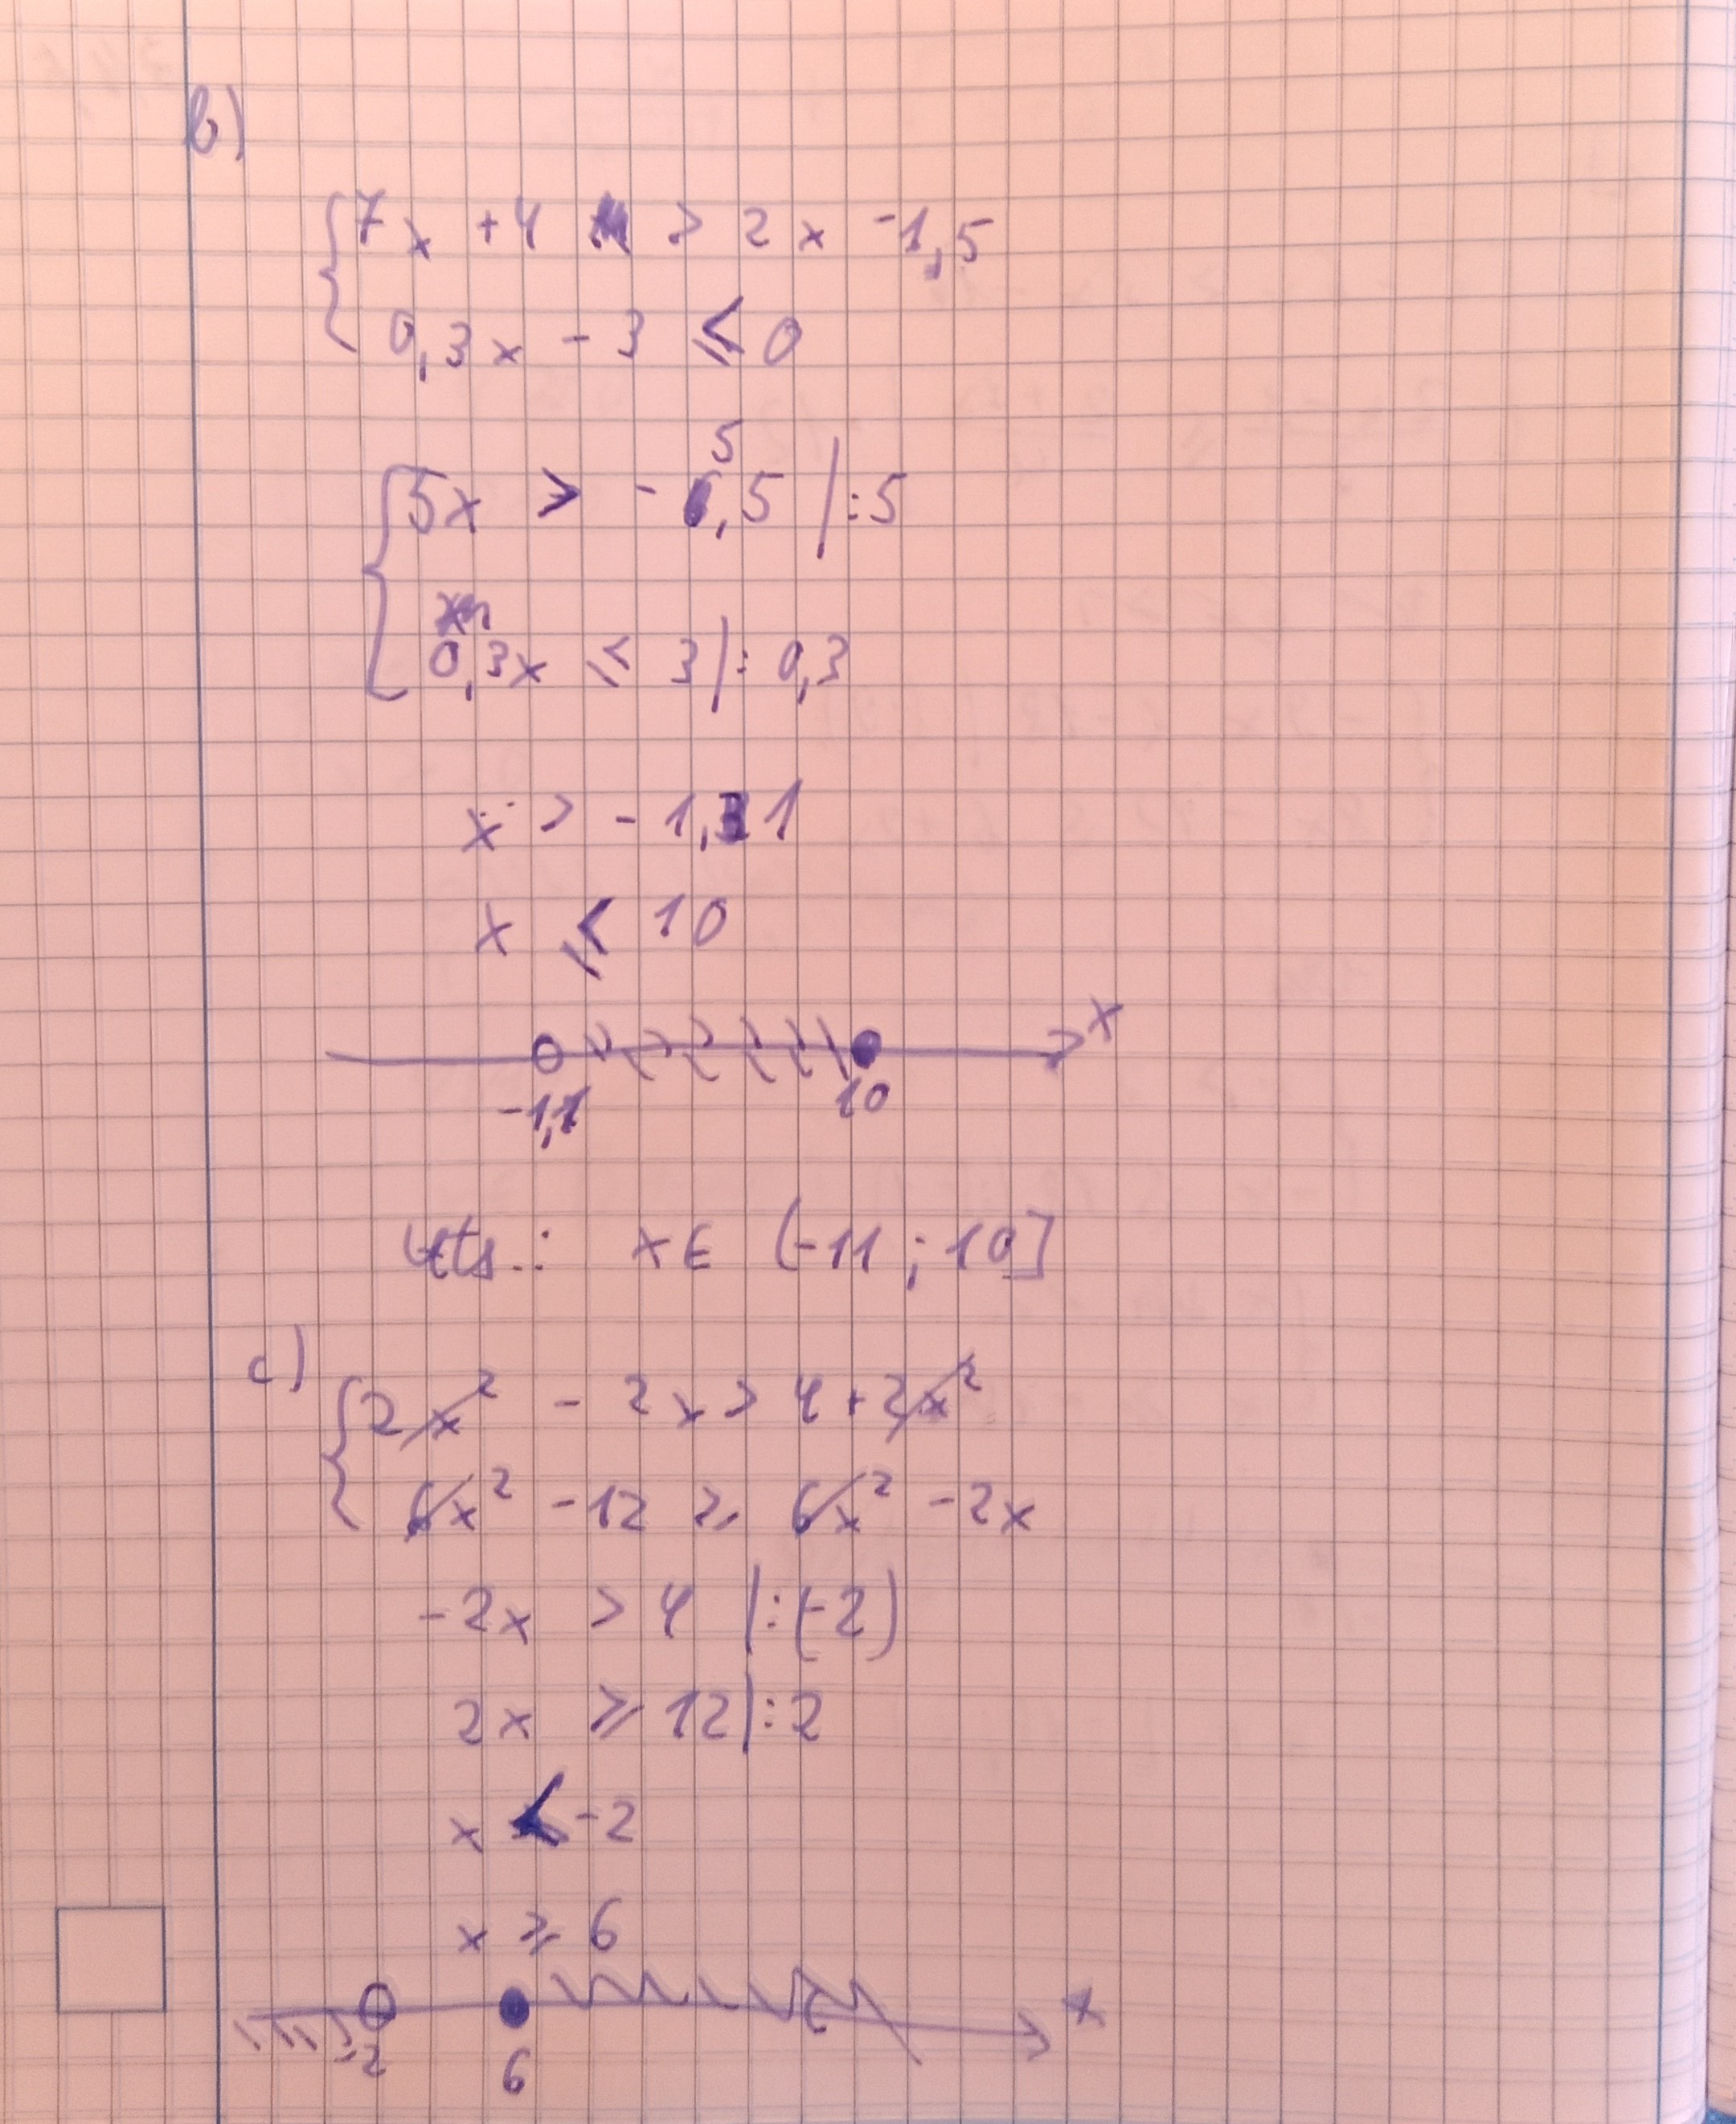 b)
7x +4 > 2x -1,5
0,3x - 3 ⩽ 0
5x > - 5,5 |:5
0,3x ⩽ 3 |: 0,3
x > - 1,1
x ⩽ 10
x
-1,1 10
Ats.: x∈ (-11 ; 10]
c)
2x² - 2x > 4 + 2x²
6x² -12 ⩾ 6x² -2x
-2x > 4 |:(-2)
2x ⩾ 12 |:2
x < -2
x ⩾ 6
x
-2 6